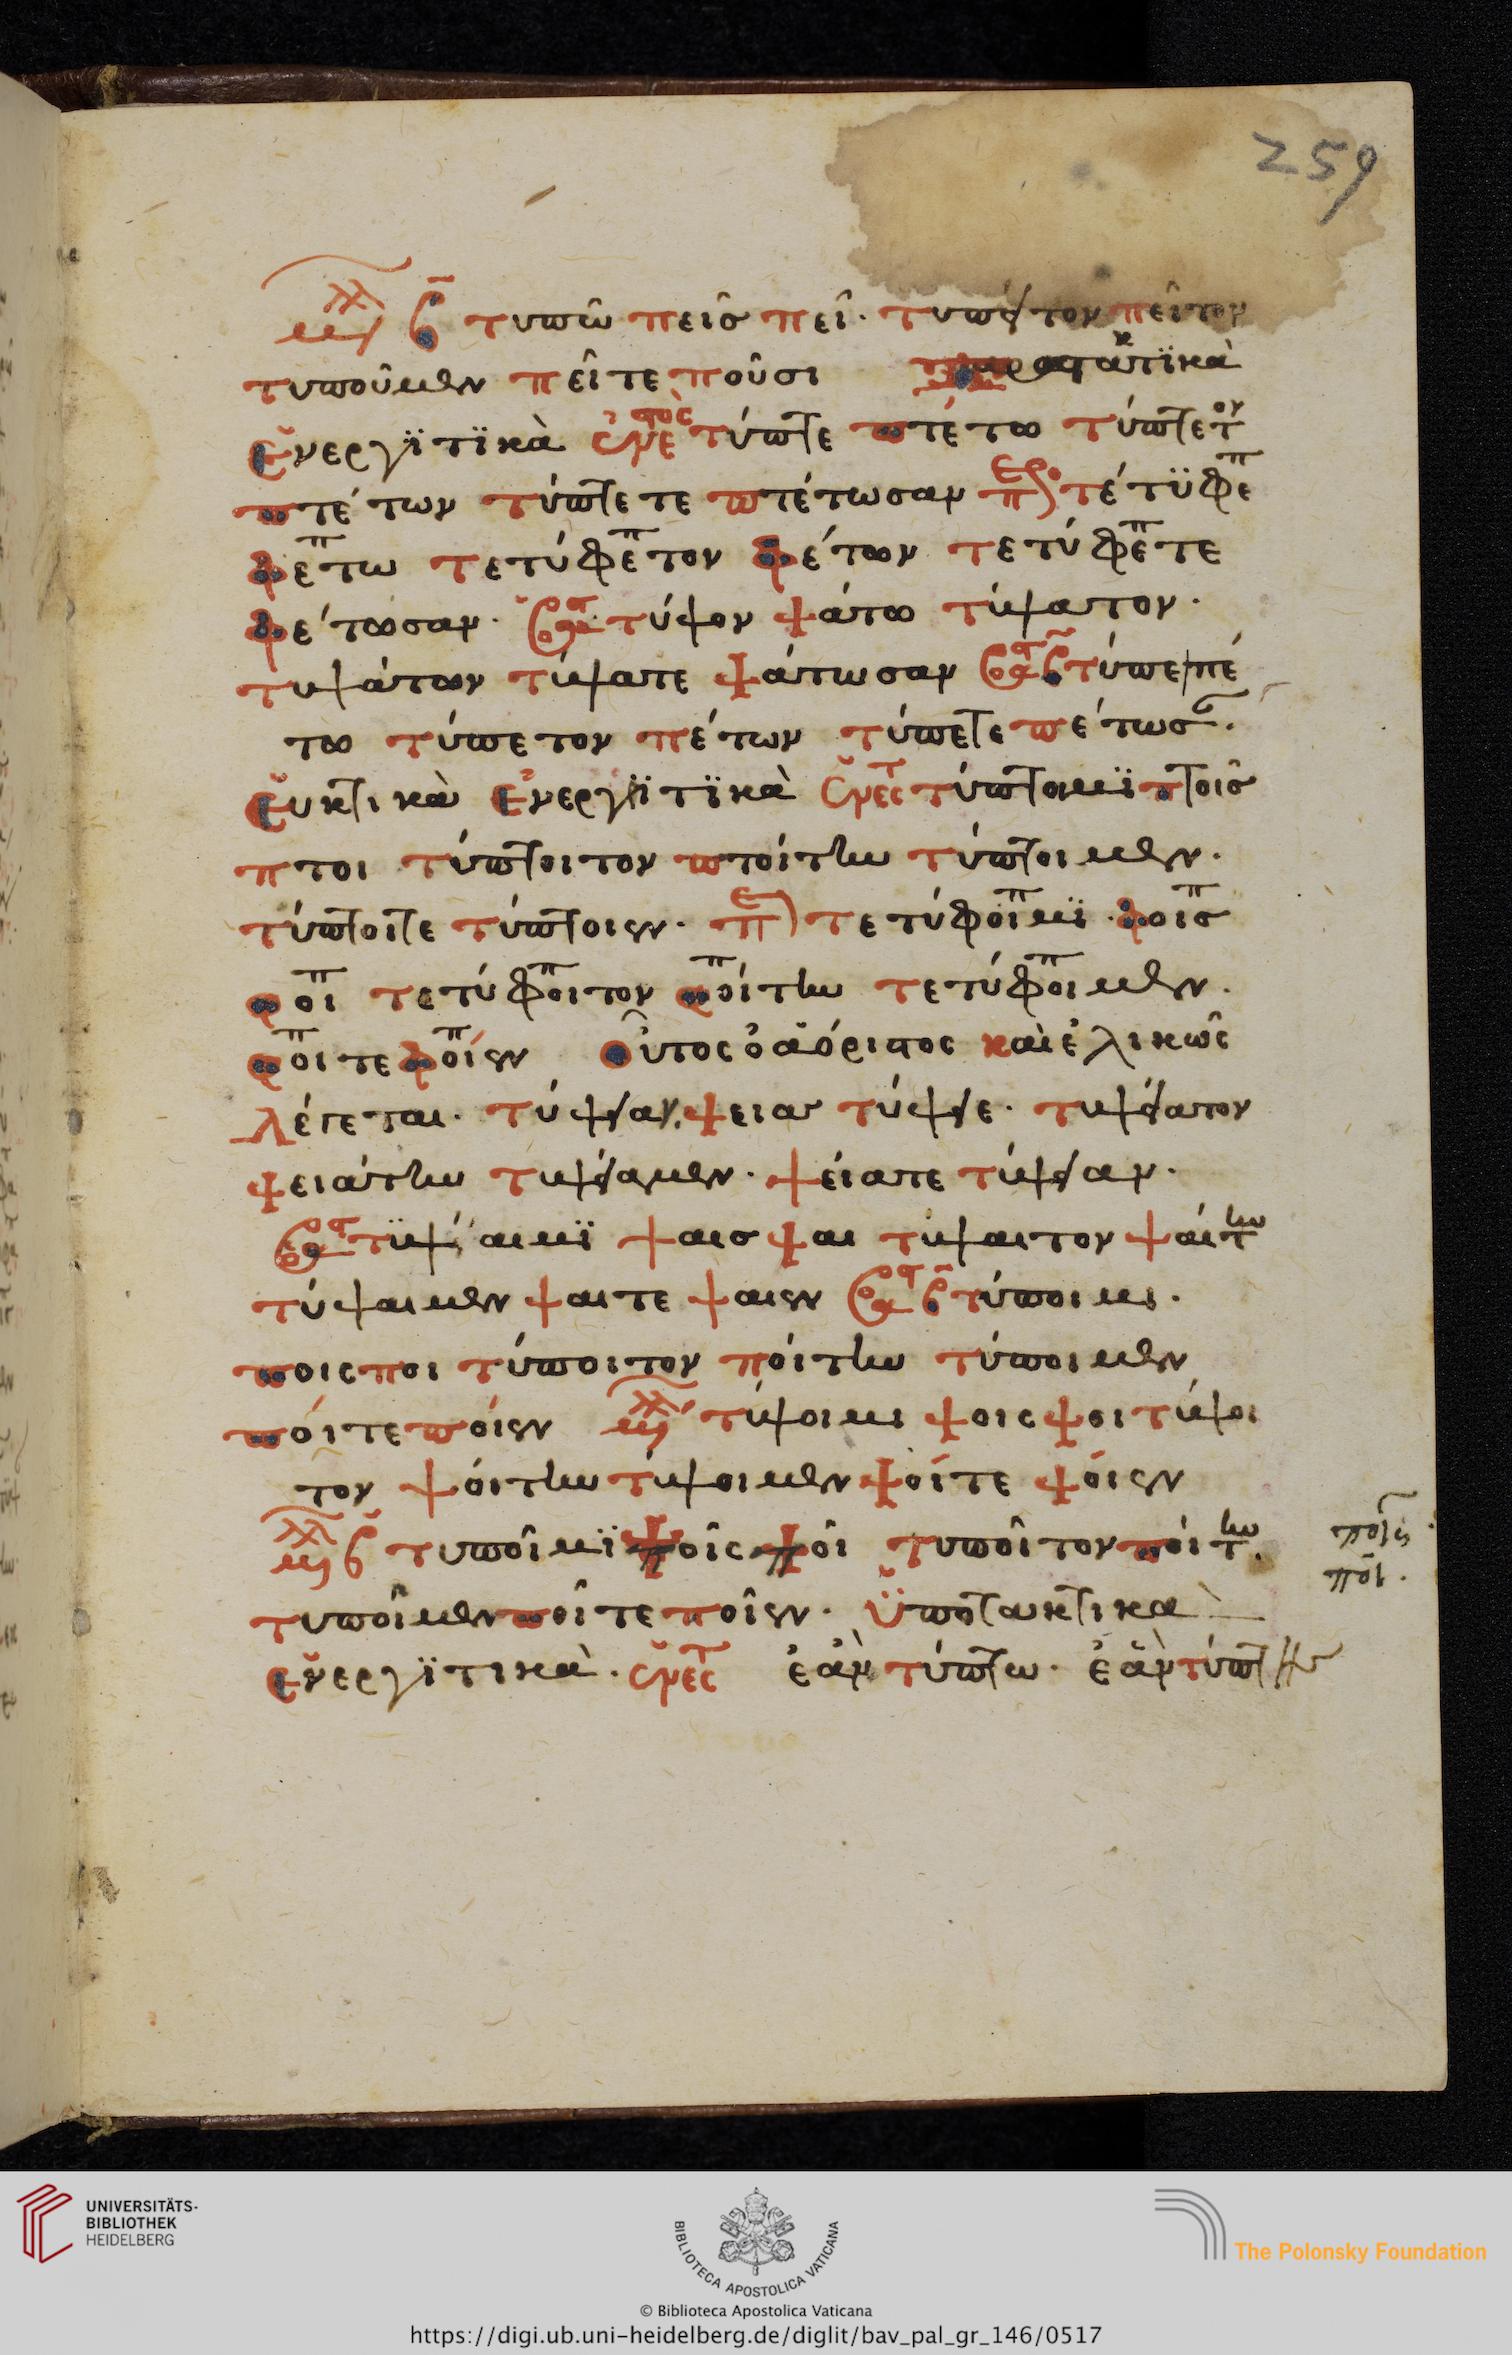 259
μελλ β τυπῶ πεῖσ πεῖ· τυπεῖτον πεῖτον
τυποῦμεν πεῖτε ποῦσι προστακτϊκὰ
ἐνεργϊτϊκὰ ἐνε τύπτε πτέτω τύπτετον
πτέτων τύπτετε πτέτωσαν τέτϋφε
φέτω τετύφετον φέτων τετύφετε
φέτωσαν· τύψον ψάτω τύψατον·
τυψάτων τύψατε ψάτωσαν β τύπε πέ
τω τύπετον πέτων τύπετε πέτωσαν·
εὐκτικὰ ἐνεργϊτϊκὰ ἐνεστ τύπτοιμϊ πτοισ
πτοι τύπτοιτον πτοίτην τύπτοιμεν·
τύπτοιτε τύπτοιεν· τετύφοιμϊ φοισ
φοι τετύφοιτον φοίτην τετύφοιμεν·
φοιτε φοίεν οὗτος ὁ ἀόριστος καὶ ἐλικῶς
λέγεται· τύψειαν ψειασ τύψειε· τυψείατον
ψειάτην τυψείαμεν· ψείατε τύψειαν·
τϋψαιμϊ ψαισ ψαι τύψαιτον ψαίτην
τύψαιμεν ψαιτε ψαιεν β τύποιμι·
ποις ποι τύποιτον πόιτην τύποιμεν
πόιτε πόιεν τύψοιμι ψοις ψοι τύψοι
τον ψόιτην τύψοιμεν ψοίτε ψόιεν
β τυποῖμϊ ψοῖς ψοῖ τυποῖτον ποίτην·
ποῖς·
ποῖ·
τυποῖμεν ποῖτε ποῖεν· ὑποτακτικὰ
ἐνεργϊτικὰ· ἐνεστ ἐὰν τύπτω· ἐὰν τύπτησ
UNIVERSITÄTS-
BIBLIOTHEK
HEIDELBERG
BIBLIOTECA APOSTOLICA VATICANA
The Polonsky Foundation
© Biblioteca Apostolica Vaticana
https://digi.ub.uni-heidelberg.de/diglit/bav_pal_gr_146/0517